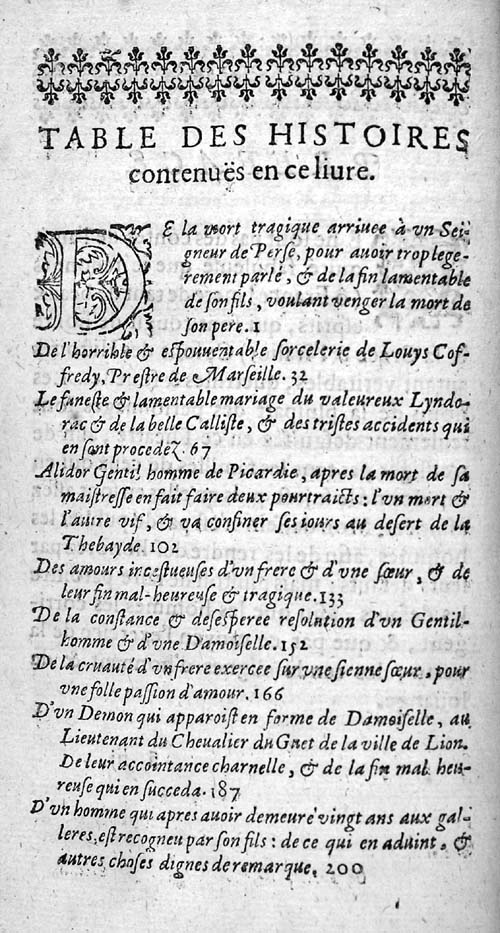 TABLE DES HISTOIRES
contenuës en ce liure.
DE la mort tragique arriuee à vn Sei-
gneur de Perse, pour auoir trop lege-
rement parlé, & de la fin lamentable
de son fils, voulant venger la mort de
son pere. 1
De l'horrible & espouuentable sorcelerie de Louys Cof-
fredy, Prestre de Marseille. 32
Le funeste & lamentable mariage du valeureux Lyndo-
rac & de la belle Calliste, & des tristes accidents qui
en sont procedez. 67
Alidor Gentil homme de Picardie, apres la mort de sa
maistresse en fait faire deux pourtraicts: l'vn mort &
l'autre vif, & va confiner ses iours au desert de la
Thebayde. 102
Des amours incestueuses d'vn frere & d'vne sœur, & de
leur fin mal-heureuse & tragique. 133
De la constance & desesperee resolution d'vn Gentil-
homme & d'vne Damoiselle. 152
De la cruauté d'vn frere exercee sur vne sienne sœur, pour
vne folle passion d'amour. 166
D'vn Demon qui apparoist en forme de Damoiselle, au
Lieutenant du Cheualier du Guet de la ville de Lion.
De leur accointance charnelle, & de la fin mal heu-
reuse qui en succeda. 187
D'vn homme qui apres auoir demeuré vingt ans aux gal-
leres, est recogneu par son fils: de ce qui en aduint, &
autres choses dignes de remarque. 200